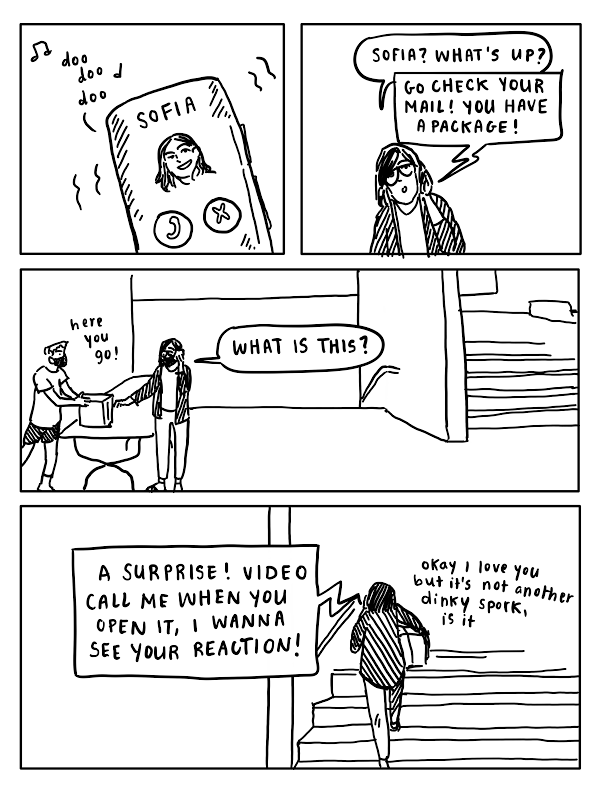 doo
doo
doo
SOFIA
SOFIA? WHAT'S UP?
GO CHECK YOUR
MAIL! YOU HAVE
A PACKAGE!
here
you
go!
WHAT IS THIS?
A SURPRISE! VIDEO
CALL ME WHEN YOU
OPEN IT, I WANNA
SEE YOUR REACTION!
okay I love you
but it's not another
dinky spork,
is it